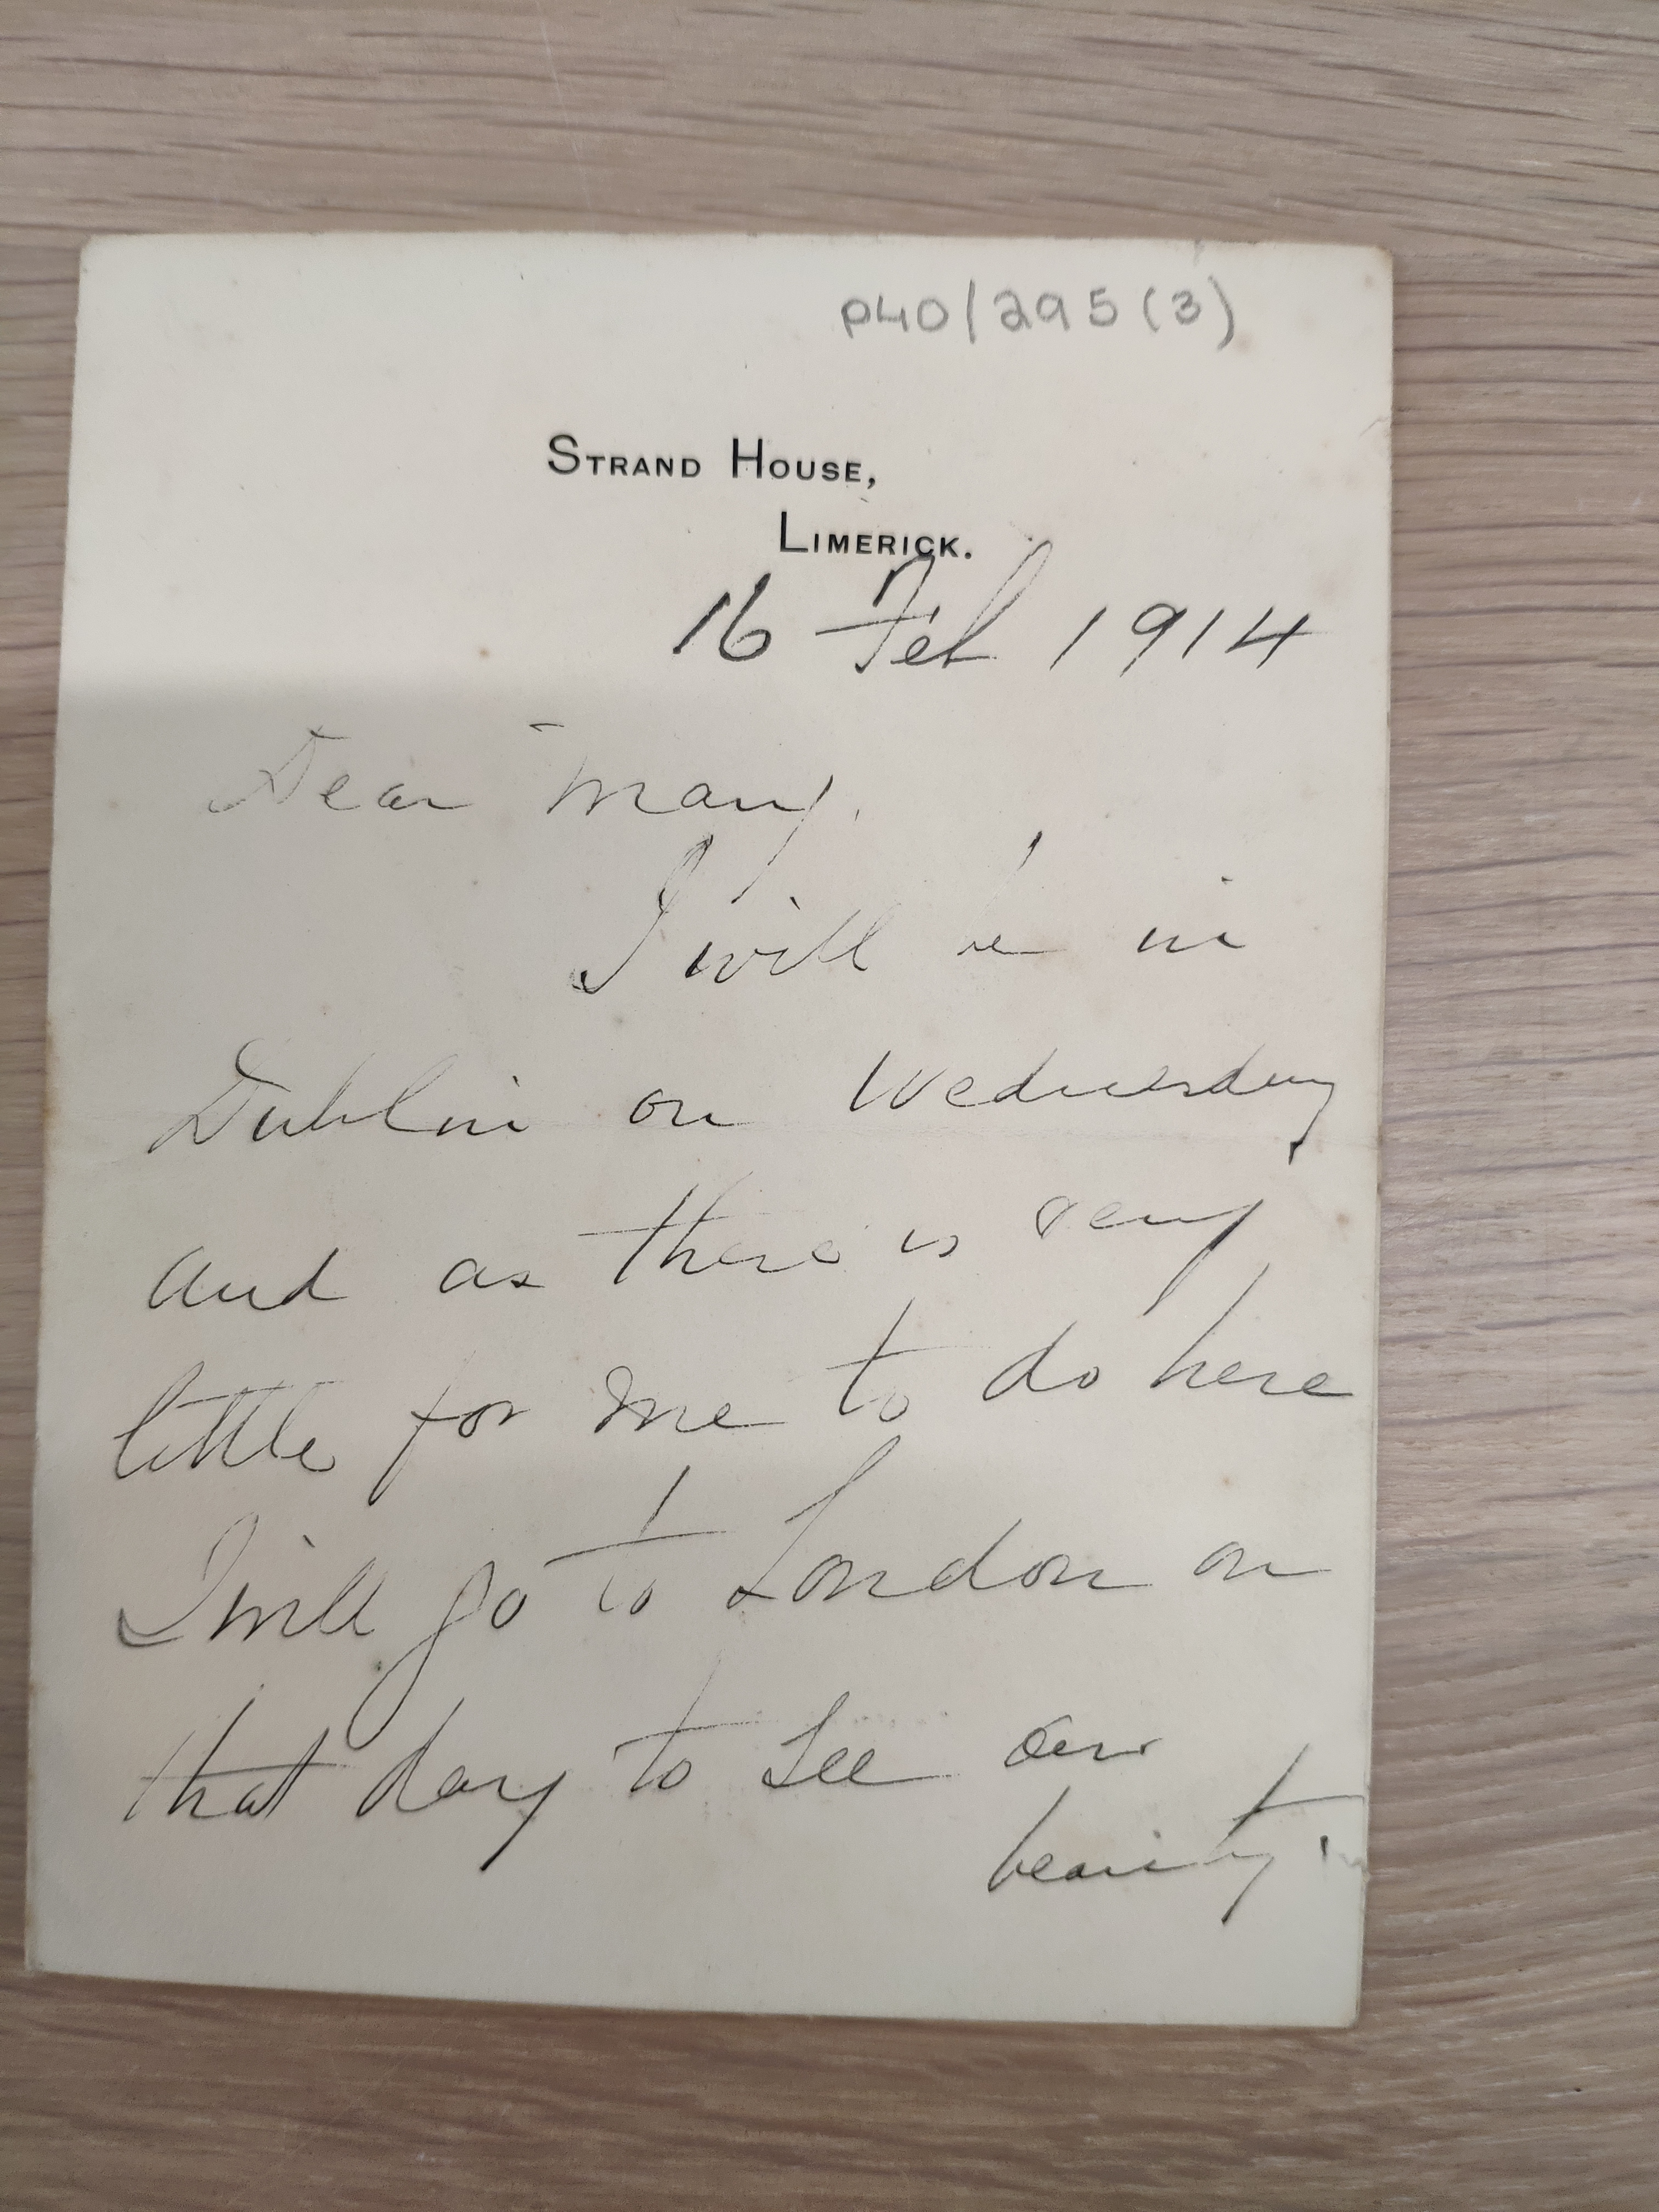 P40/295(3)
STRAND HOUSE,
LIMERICK.
16 Feb 1914
Dear Mary.
I will be in
Dublin on Wednesday
and as there is very
little for me to do here
I will go to London on
that day to see our